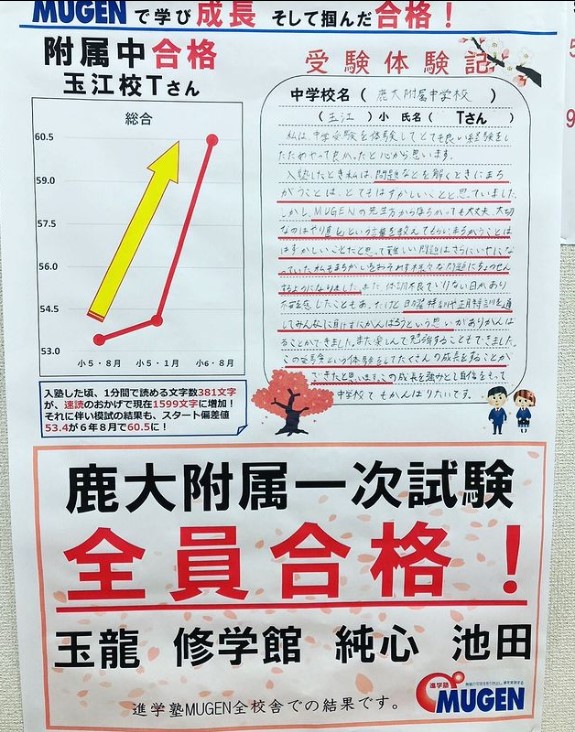 MUGENで学び成長 そして掴んだ合格！
附属中合格
玉江校Tさん
総合
60.5
59.0
57.5
56.0
54.5
53.0
小5・8月 小5・1月 小6・8月
入塾した頃、1分間で読める文字数381文字
が、速読のおかげで現在1599文字に増加！
それに伴い模試の結果も、スタート偏差値
53.4が6年8月で60.5に！
受験体験記
中学校名（ 鹿大附属中学校 ）
（ 玉江 ）小 氏名（ Tさん ）
私は、中学受験を体験してとても良い経験をし
たためやって良かったと心から思います。
入塾したとき私は、問題などを解くときにまち
がうことは、とてもはずかしいことと思っていました。
しかし、MUGENの先生方からまちがっても大丈夫、大切
なのはやり直しという言葉を
はずかしい
するようになりました。また、体調不良で
日曜特訓や正月特訓を通
してみんなに負けずにがんばろうという思い
ることができました。また楽しんで勉強することもできました。
この受験という体験をしてたくさんの成長をすることが
できたと思います。この成長を強みとし自信をもって
中学校でもがんばりたいです。
鹿大附属一次試験
全員合格！
玉龍 修学館 純心 池田
進学塾MUGEN全校舎での結果です。
進学塾
MUGEN